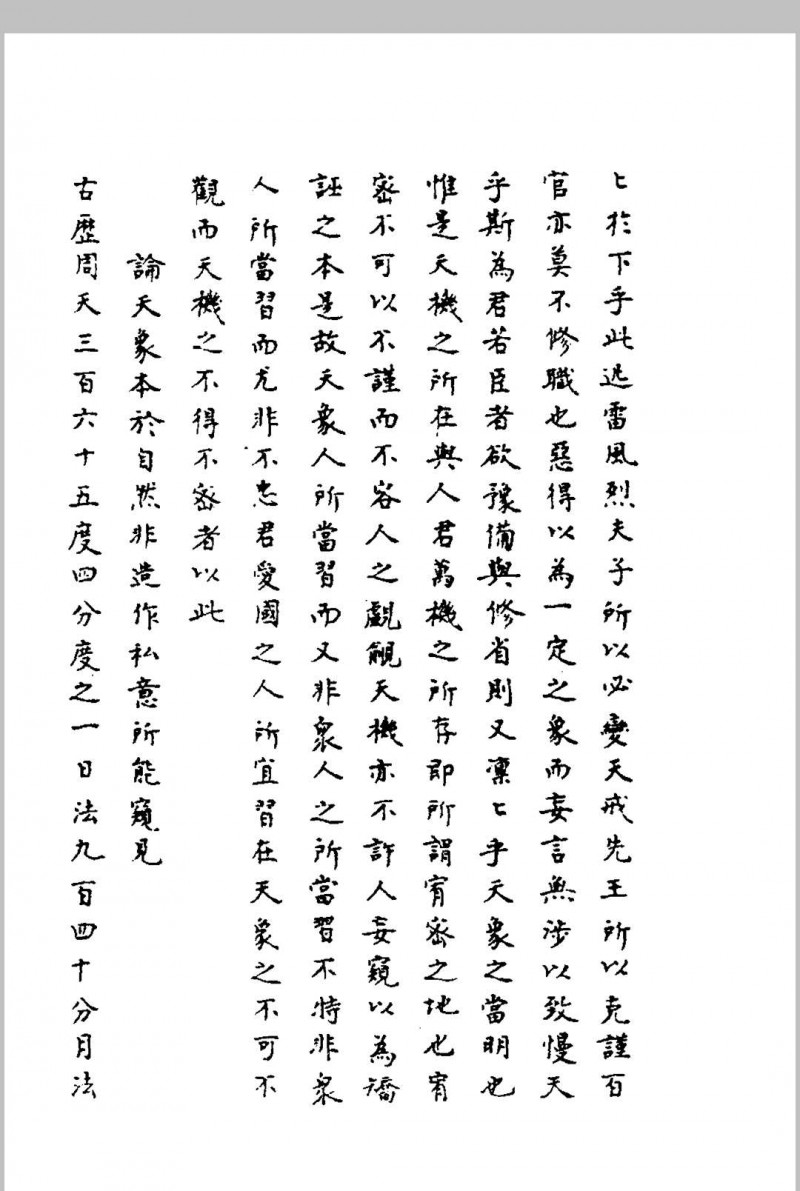 〻於下乎此迅雷風烈夫子所以必變天戒先王所以克謹百
官亦莫不修職也惡得以為一定之象而妄言無涉以致慢天
乎斯為君若臣者欲豫備與修省則又凜〻乎天象之當明也
惟是天機之所在與人君萬機之所存即所謂宥密之地也宥
密不可以不謹而不容人之覰覦天機亦不許人妄窺以為矯
誣之本是故天象人所當習而又非衆人之所當習不特非衆
人所當習而尤非不忠君愛國之人所宜習在天象之不可不
觀而天機之不得不密者以此
論天象本於自然非造作私意所能窺見
古歷周天三百六十五度四分度之一日法九百四十分月法